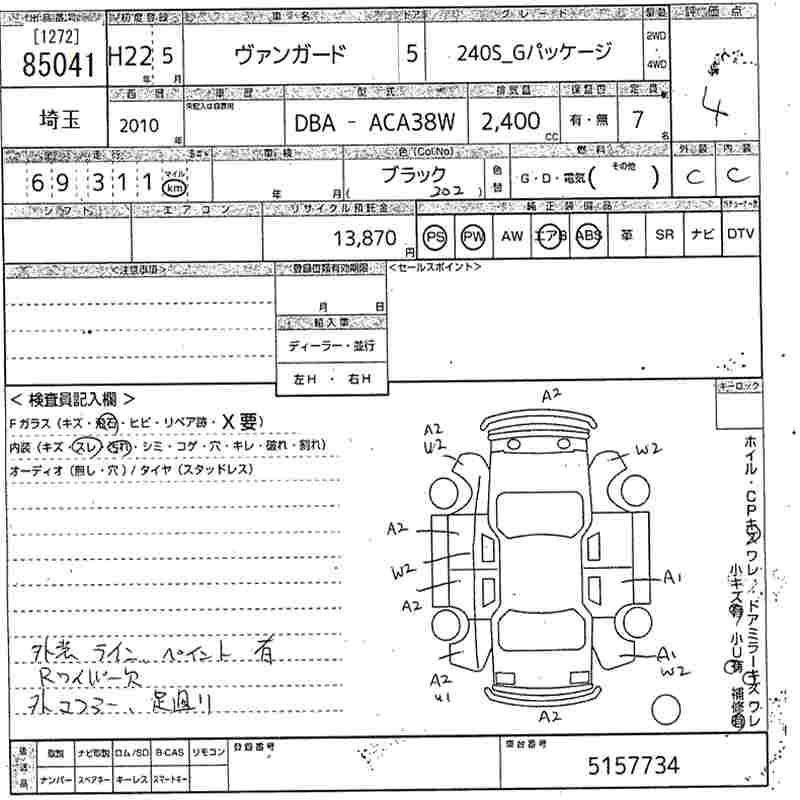 出品番号 初度登録 車名 ドア グレード 駆動 評価点
[1272]
85041 H22 年 5 月 ヴァンガード 5 240S_Gパッケージ 2WD・4WD 4
埼玉 西暦 車歴 型式 排気量 保証書 定員
2010 年 DBA - ACA38W 2,400 CC 有・無 7 名
走行 車検 色(Col.No) 燃料 外装 内装
69311 マイル km 年 月 ブラック ( 202 ) 色替 G・D・電気( その他 ) C C
シフト エアコン リサイクル預託金 純正装備品
13,870 円 PS PW AW エアB ABS 革 SR ナビ DTV
<注意事項> 登録書類有効期限 <セールスポイント>
月 日
輸入車
ディーラー・並行
左H ・ 右H
＜検査員記入欄＞ キーロック
Fガラス（キズ・飛石・ヒビ・リペア跡・X要）
内装（キズ・スレ・汚れ・シミ・コゲ・穴・キレ・破れ・割れ）
オーディオ（無し・穴）/ タイヤ（スタッドレス）
A2
A2
U2
W2
A2
W2
A2
A1
A2
U1
A1
W2
A2
ホイル・CPキズワレ/ドアミラーキズワレ
小キズ有/小U有 補修有
外装 ライン、ペイント 有
Rワイパー欠
外コスラー、足廻り
後送品 取説 ナビ取説 ロム/SD B-CAS リモコン 登録番号 車台番号
ナンバー スペアキー キーレス スマートキー 5157734